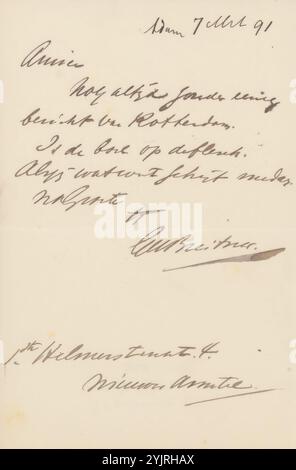 Adam 7 Mrt 91
Amice
Nog altijd zonder eenig
bericht van Rotterdam.
Is de boel op de flesch.
Als je wat weet schrijf me dan
na Groete
tt
GHBreitner.
1ste Helmersstraat 4.
Nieuwer Amstel
alamy
Image ID: 2YJRHAX
www.alamy.com